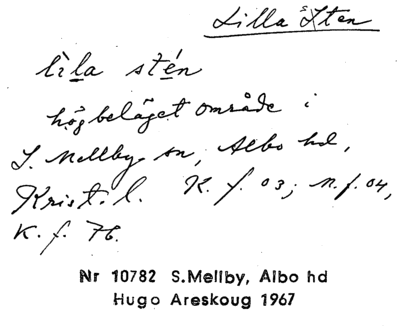 Lilla Sten
lìla stén
högbeläget område i
S. Mellby sn, Albo hd,
Krist. l. K. f. 03; N. f. 04,
K. f. 76.
Nr 10782 S.Mellby, Albo hd
Hugo Areskoug 1967